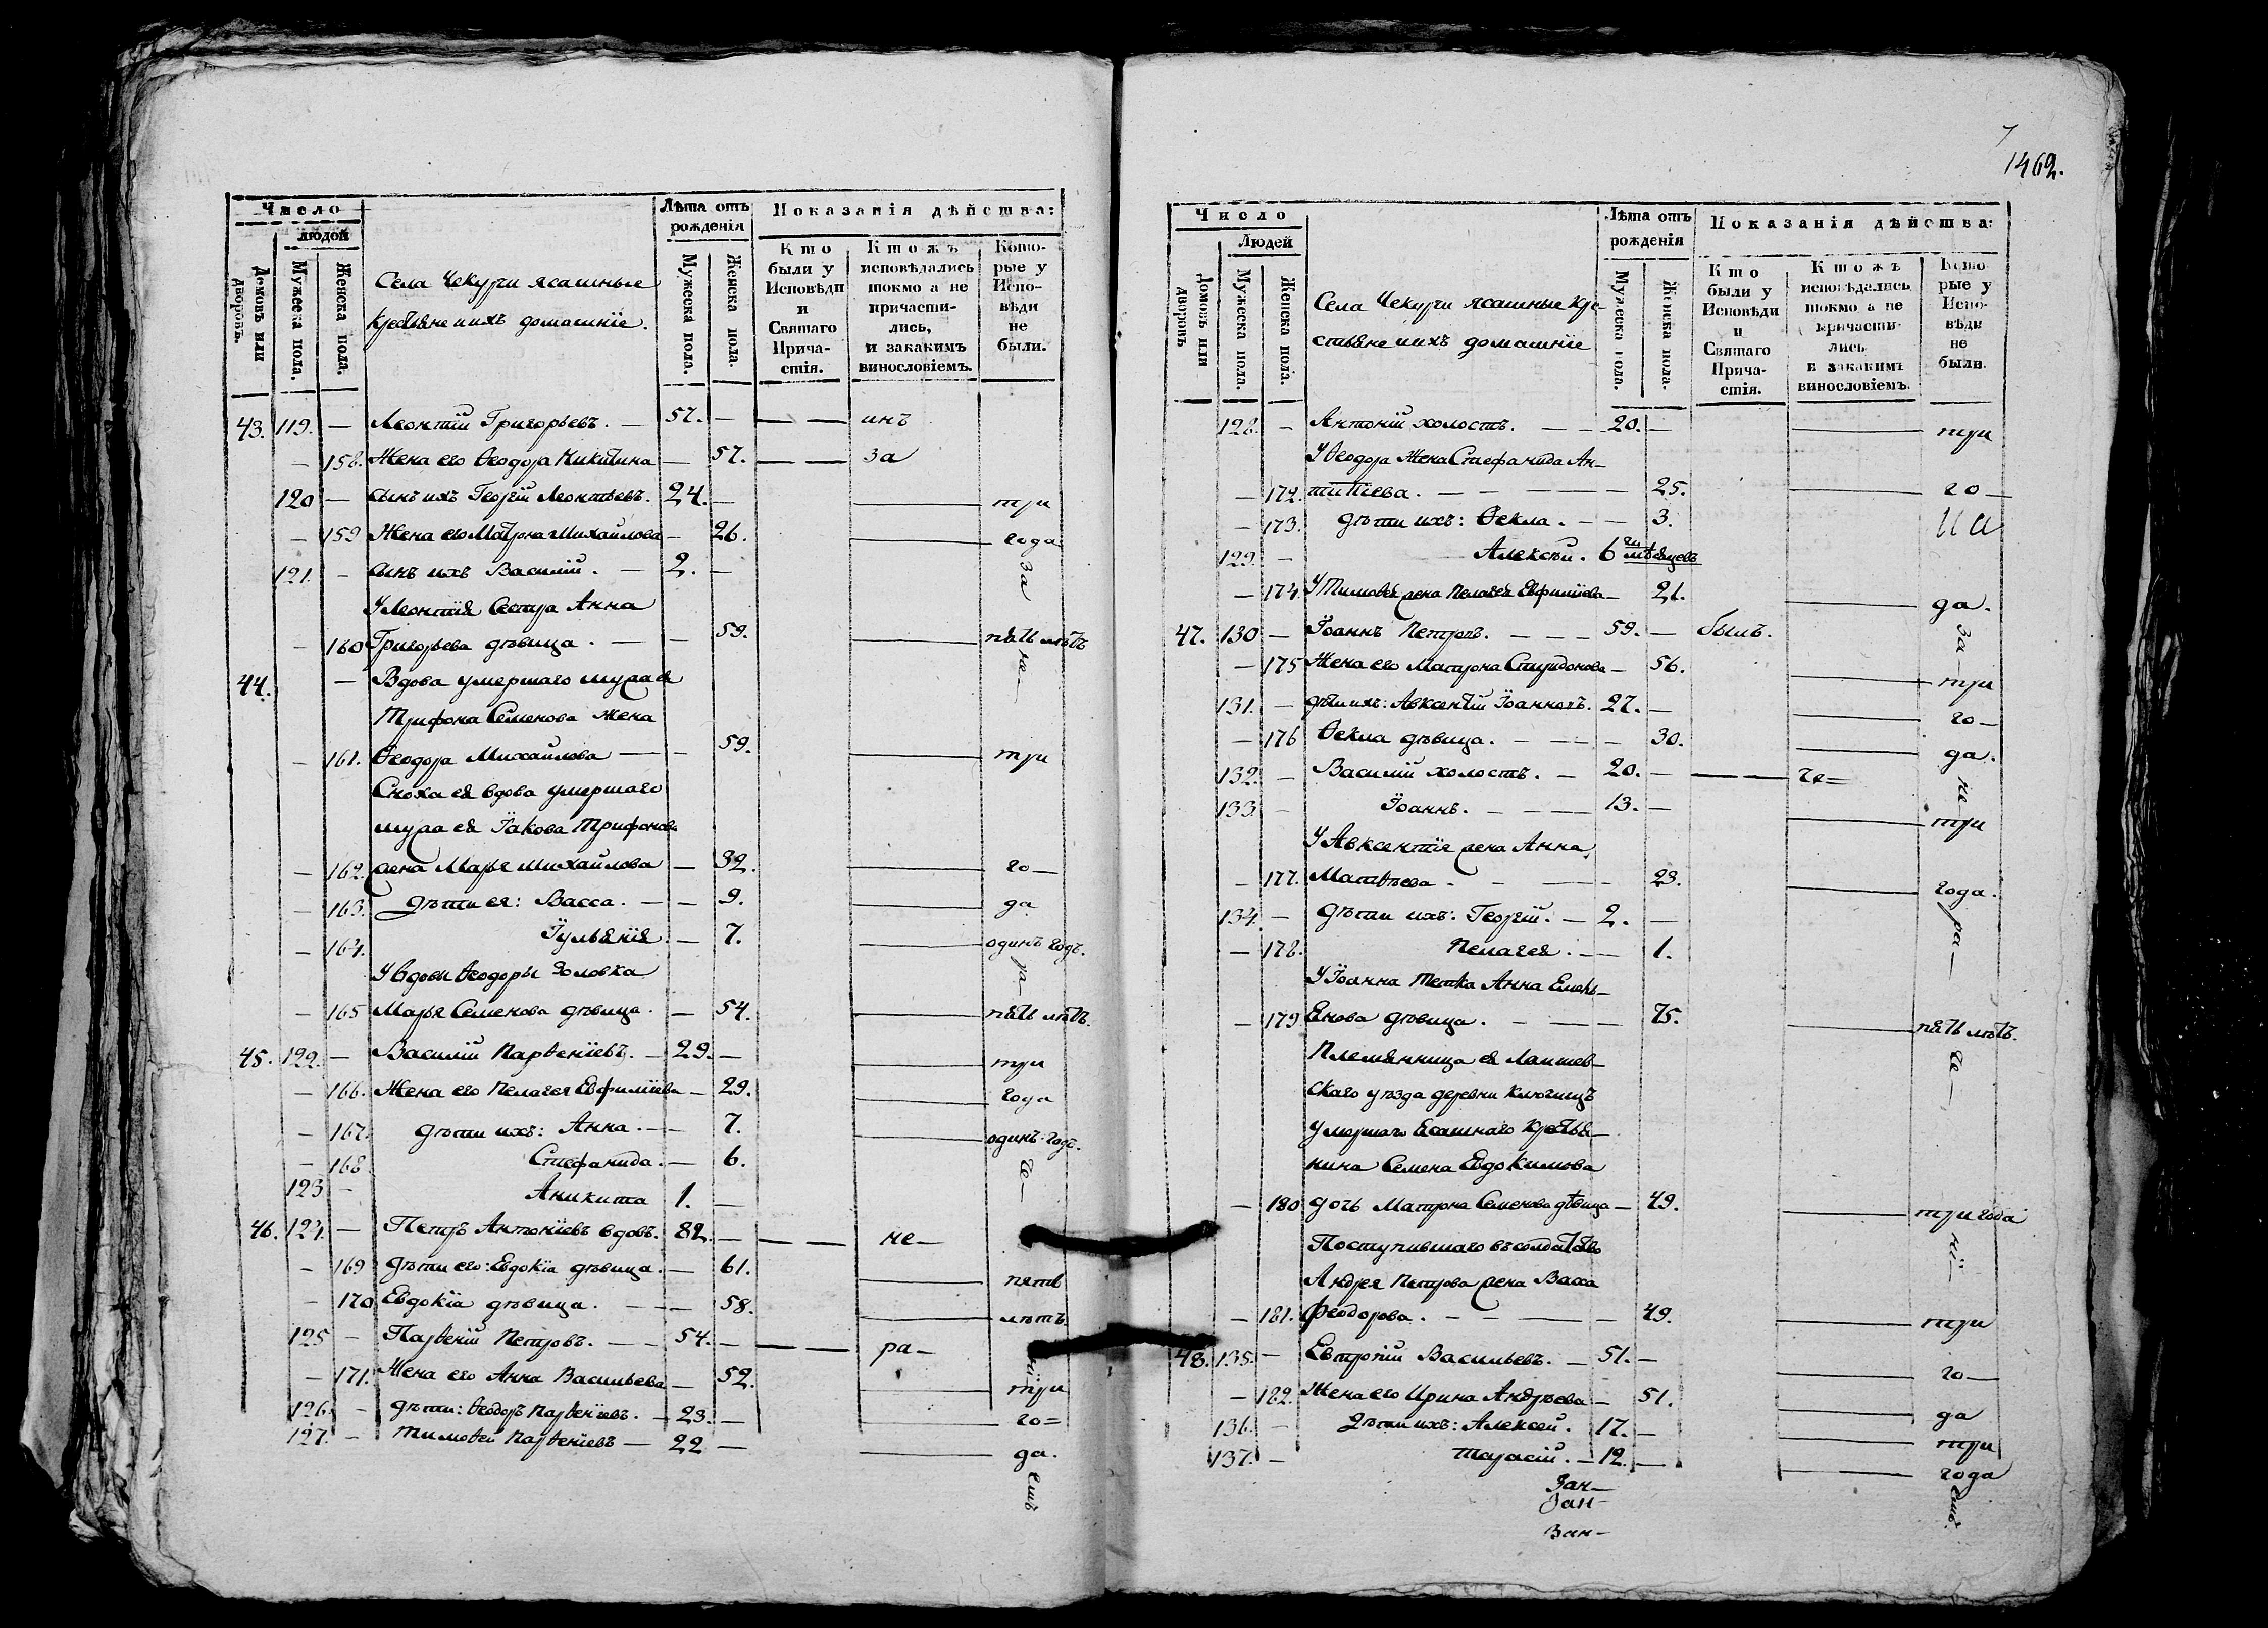 Число
людей
Домовъ или дворовъ.
Мужеска пола.
Женска пола.
Села Чекурчи ясашные
крестьяне и ихъ домашніе.
Лѣта отъ рожденія
Мужеска пола.
Женска пола.
Показанія дѣйства:
Кто были у Исповѣди и Святаго Причастія.
Ктожъ исповѣдались токмо а не причастились, и закакимъ винословіемъ.
Которые у Исповѣди не были.
43. 119. — Леонтій Григорьевъ. — 57. — — — инъ
— 158. Жена его Ѳеодора Никитина — 57. — — за
120 — сынъ ихъ Георгій Леонтьевъ. 24. — — три
— 159 Жена его Матрона Михайлова — 26. — года
121. — сынъ ихъ Василій. — 2. — за
У Леонтія Сестра Анна
— 160 Григорьева дѣвица. — — 59. — пять лѣтъ
не—
44. — Вдова умершаго мужа ея
Трифона Семенова жена
— 161. Ѳеодора Михайлова — — 59. — три
Сноха ея вдова умершаго
мужа ея Іакова Трифонова
— 162. жена Марья Михайлова — 32. — го—
— 163. дѣти ея: Васса. — — 9. — да
— 164. Іульянія. — 7. — одинъ годъ.
ра—
У вдовы Ѳеодоры Золовка
— 165 Марья Семенова дѣвица. — 54. — пять лѣтъ.
45. 122. — Василій Парѳеніевъ. — 29. — — три
— 166. Жена его Пелагея Евфиміева — 29. — года
— 167. дѣти ихъ: Анна. — — 7. — одинъ годъ.
— 168 Стефанида. — 6. че—
123 — Аникита 1. —
46. 124. — Петръ Антоніевъ вдовъ. 82. — — — не—
— 169 дѣти его: Евдокіа дѣвица. — 61. — пять
— 170 Евдокіа дѣвица. — — — 58. — лѣтъ.
125 — Парѳеній Петровъ. — — 54. — — — ра—
ні—
— 171. Жена его Анна Васильева — 52. — три
126. — дѣти: Ѳеодоръ Парѳеніевъ. — 23. — — го=
127. — Тимоѳей Парѳеніевъ — 22 — — да.
емъ
1469.
Число
Людей
Домовъ или дворовъ
Мужеска пола.
Женска пола.
Села Чекурчи ясашные кре-
стьяне и ихъ домашніе
Лѣта отъ рожденія
Мужеска пола.
Женска пола.
Показанія дѣйства:
Кто были у Исповѣди и Святаго Причастія.
Ктожъ исповѣдались токмо а не причастились и закакимъ винословіемъ.
Которые у Исповѣди не были.
128. — Антоній холостъ. — — 20. — — три
У Ѳеодора Жена Стефанида Ан—
— 172. типіева. — — — — 25. — го—
— 173. дѣти ихъ: Ѳекла. — — 3.
129. — Алексѣй. 6 ти мѣсяцевъ
— 174. У Тимоѳея жена Пелагея Евфиміева — 21. — да.
47. 130 — Іоаннъ Петровъ. — — — 59. — былъ.
за—
— 175 Жена его Матрона Спиридонова — 56. — три
131. — дѣти ихъ: Авксентій Іоанновъ. 27. — — го—
— 176 Ѳекла дѣвица. — — — 30. — да.
132. — Василій холостъ. — 20. — — — че=
не
133 — Іоаннъ. — — — 13. — — три
У Авксентія жена Анна
— 177. Матѳѣева. — — — 23. — года.
134. — дѣти ихъ: Георгій. — 2. —
ра—
— 178. Пелагея. — — 1.
У Іоанна Тетка Анна Емель—
— 179 янова дѣвица. — — — 75. — пять лѣтъ.
Племянница ея Лаишев—
че—
скаго уѣзда деревни Ключищъ
умершаго Ясашнаго крестья—
нина Семена Евдокимова
— 180 дочь Матрона Семенова дѣвица — 49. — три года
Поступившаго въ солдатство
ні—
Андрея Петрова жена Васса
— 181. Феодорова. — — — — 49. — три
48. 135. — Евтропій Васильевъ. — 51. — — го—
— 182. Жена его Ирина Андрѣева — 51. — да
136. — дѣти ихъ: Алексѣй. 17. — — три
137. — Тарасій. — 12. — — года
емъ.
Зан—
Зан—
Зан—